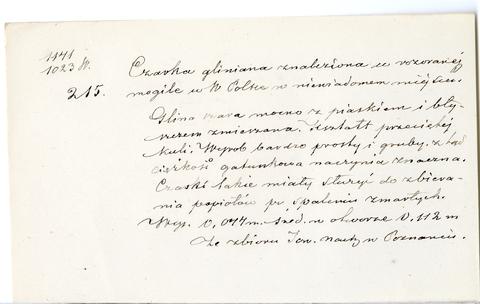 1141
1023 W.
215.
Czarka gliniana znaleziona w rozoranej
mogile w W. Polsce w niewiadomem miejscu.
Glina szara mocno z piaskiem i błys-
zczem zmieszana. Kształt przeciętej
kuli. Wyrób bardzo prosty i gruby, z tąd
ciężkość gatunkowa naczynia znaczna.
Czarki takie miały służyć do zbiera-
nia popiołów po spaleniu zmarłych.
Wys. 0,044 m. Śred. w otworze 0.112 m
Ze zbioru Tow. nauk. w Poznaniu.